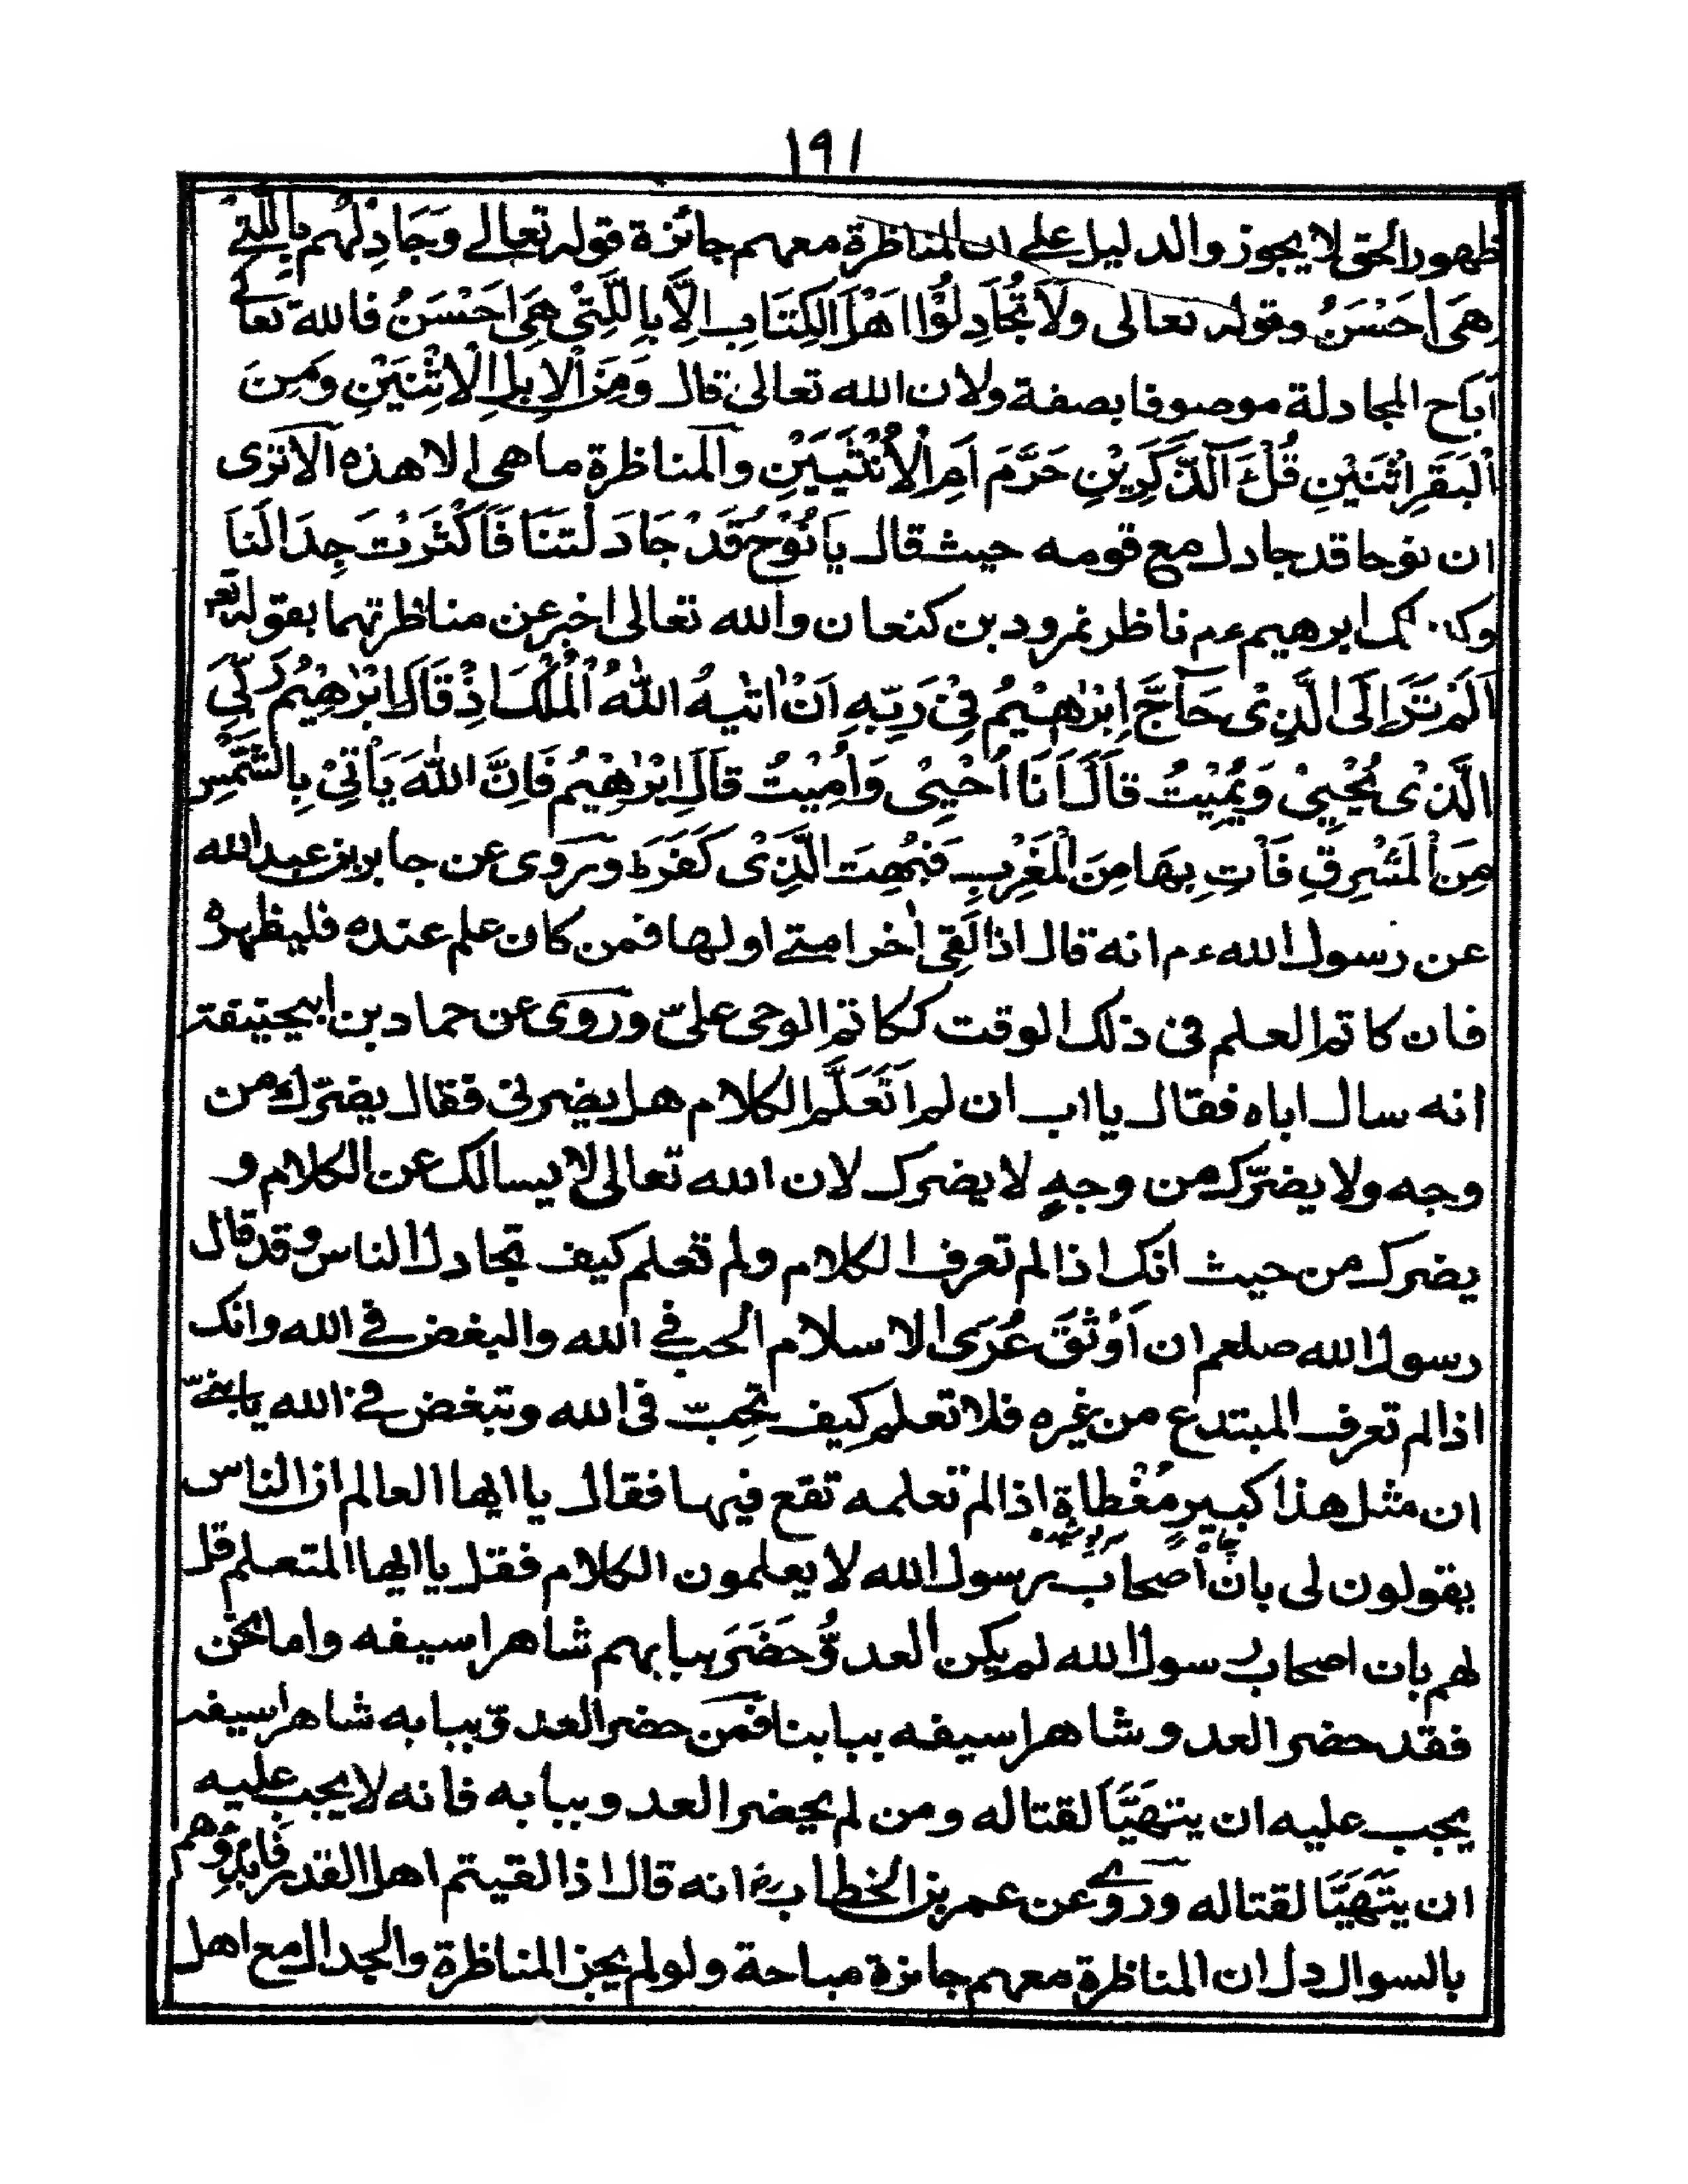 ١٩١
ظهور الحق لا يجوز والدليل على ان المناظرة معهم جائزة قوله تعالى وَجَادِلْهُم بِالَّتِيْ
هِىَ اَحْسَنُ وقوله تعالى ولَا تُجَادِلُوْا اَهْلَ الكِتَابِ اِلَّا بِالَّتِىْ هِىَ اَحْسَنُ فالله تعالى
اَبَاح المجادلة موصوفا بصفة ولان الله تعالى قال وَمِنَ الْاِبِلِ الْاثْنَيْنِ وَمِنَ
الْبَقَرِ اثْنَيْنِ قُلْ ءَآلذَّكَرَيْنِ حَرَّمَ اَمِ الْاُنْثَيَيْنِ والمناظرة ما هى الا هذه الا ترى
ان نوحا قد جادل مع قومه حيث قال يَا نُوْحُ قَدْ جَادَلْتَنَا فَاَكْثَرْتَ جِدَالَنَا
وكذلك ابرهيم ءم ناظر نمرود بن كنعان والله تعالى اخبر عن مناظرتهما بقوله تع
اَلَمْ تَرَ اِلَى الَّذِىْ حَآجَّ اِبْرٰهِيْمُ فِىْ رَبِّهٖ اَنْ اٰتٰيهُ اللّٰهُ الْمُلْكَ اِذْ قَالَ اِبْرٰهِيْمُ رَبِّىَ
الَّذِىْ يُحْيِىْ وَيُمِيْتُ قَالَ اَنَا اُحْيِىْ وَاُمِيْتُ قَالَ اِبْرٰهِيْمُ فَاِنَّ اللّٰهَ يَاْتِىْ بِالشَّمْسِ
مِنَ الْمَشْرِقِ فَاْتِ بِهَا مِنَ الْمَغْرِبِ فَبُهِتَ الَّذِىْ كَفَرَ ط وروى عن جابر بن عبد الله
عن رسول الله ءم انه قال اذا لَقِىَ اٰخر امتى اولها فمن كان علم عنده فليظهره
فان كاتم العلم فى ذلك الوقت ككاتم الوحى علىّ وروى عن حماد بن ابيحنيفة
انه سال اباه فقال يا اب ان لم اَتَعَلَّم الكلام هل يضرنى فقال يضرّك من
وجه ولا يضرّك من وجهٍ لا يضرك لان الله تعالى لا يسالك عن الكلام و
يضرك من حيث انك اذا لم تعرف الكلام ولم تعلم كيف تجادل الناس وقد قال
رسول الله صلعم ان اَوْثَقَ عُرَى الاسلام الحب فى الله والبغض فى الله وانك
اذا لم تعرف المبتدع من غيره فلا تعلم كيف تحِبّ فى الله وتبغض فى الله يا بنىّ
ان مثل هذا كبيرٍ مُغْطاةٍ اذا لم تعلمه تقع فيها فقال يا ايها العالم ان الناس
يقولون لى بان اصحاب رسول الله لا يعلمون الكلام فقل يا ايها المتعلم قل
لهم بان اصحاب رسول الله لم يكن العدوُّ حَضَرَ ببابهم شاهرا سيفه واما نحن
فقد حضر العدو شاهرا سيفه ببابنا فَمَن حضر العدوّ ببابه شاهرا سيفه
يجب عليه ان يتهيَّاَ لقتاله ومن لم يحضر العدو ببابه فانه لا يجب عليه
ان يتَهَيَّاَ لقتاله وروى عن عمر بن الخطاب رض انه قال اذا لقيتم اهل القدر فابدؤهم
بالسوال دل ان المناظرة معهم جائزة مباحة ولو لم يجز المناظرة والجدال مع اهل